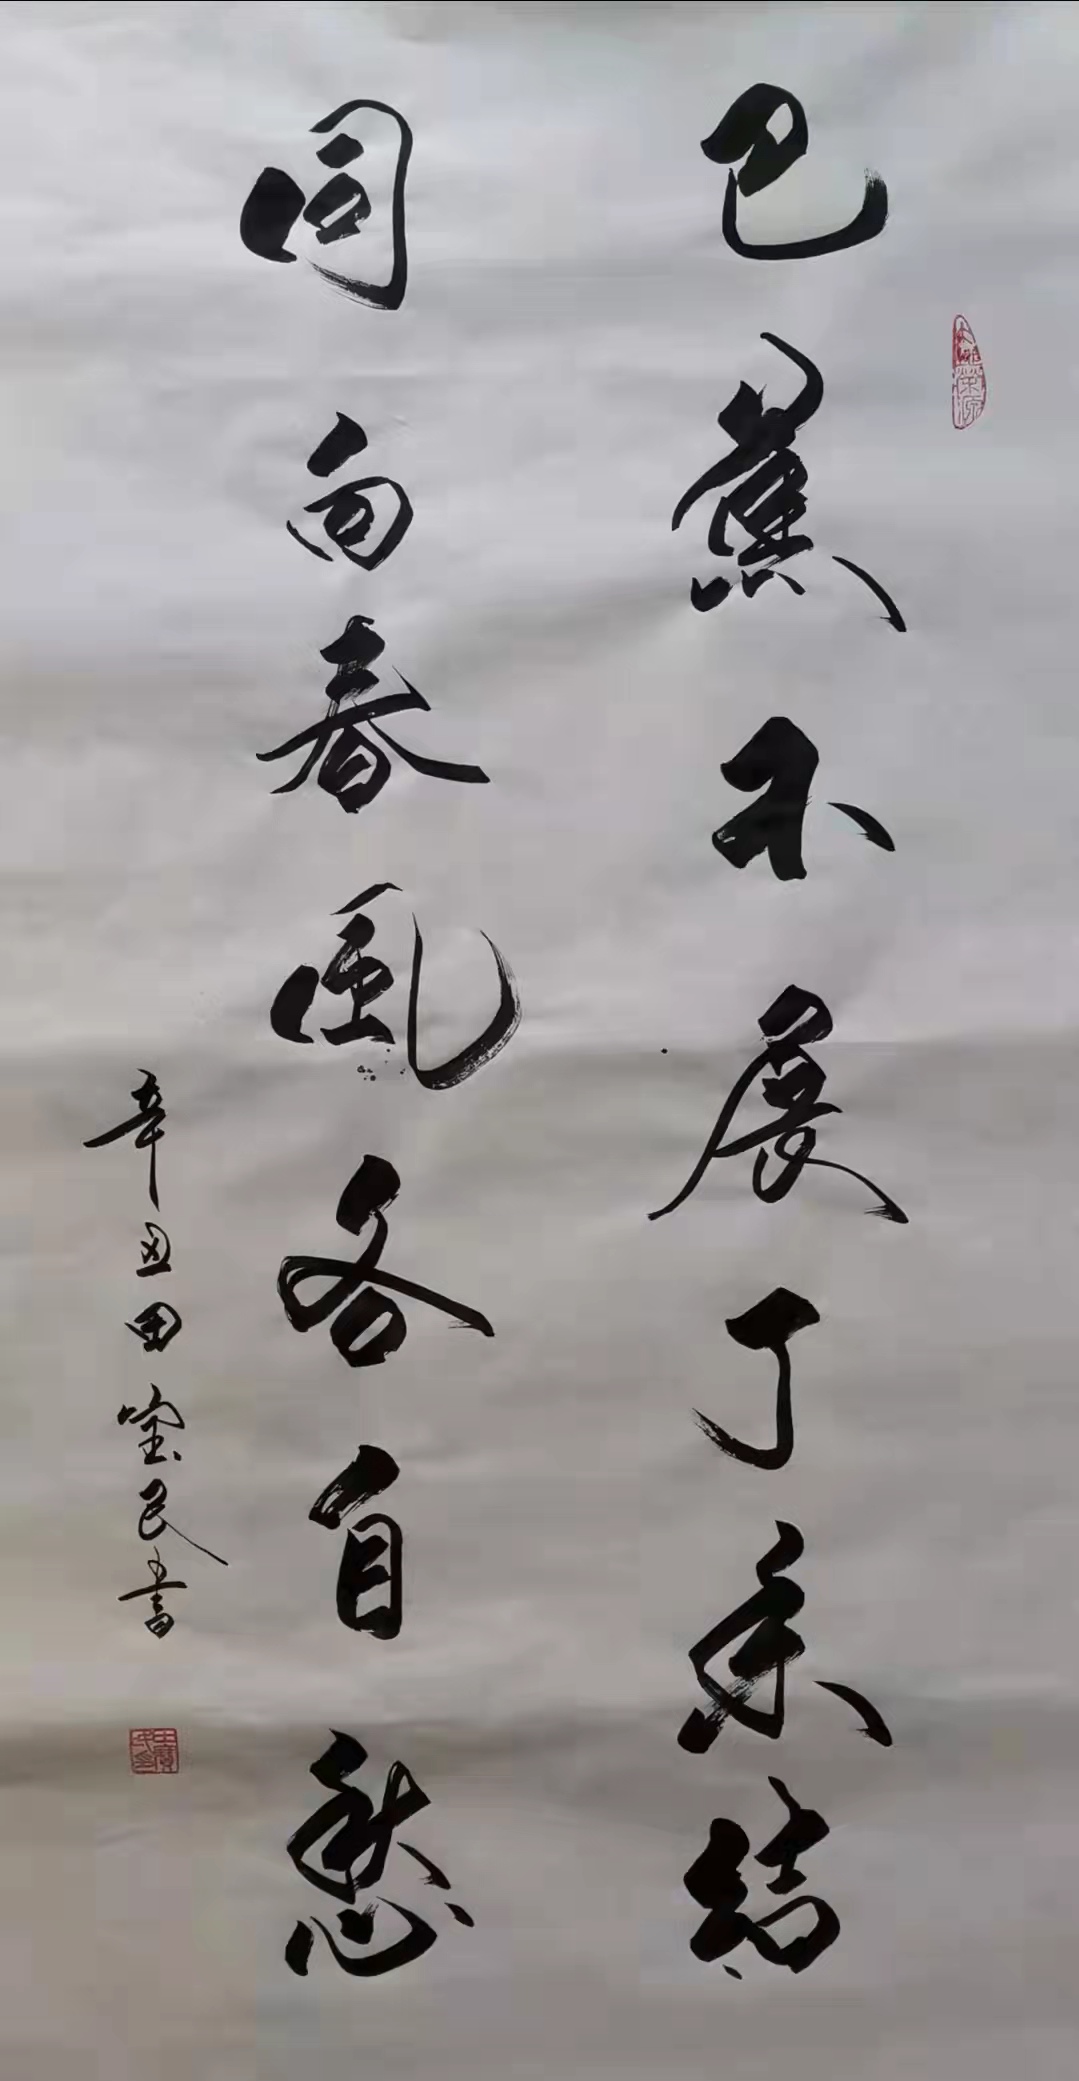 巴蕉不展丁香结
同向春风各自愁
辛丑田宝民书